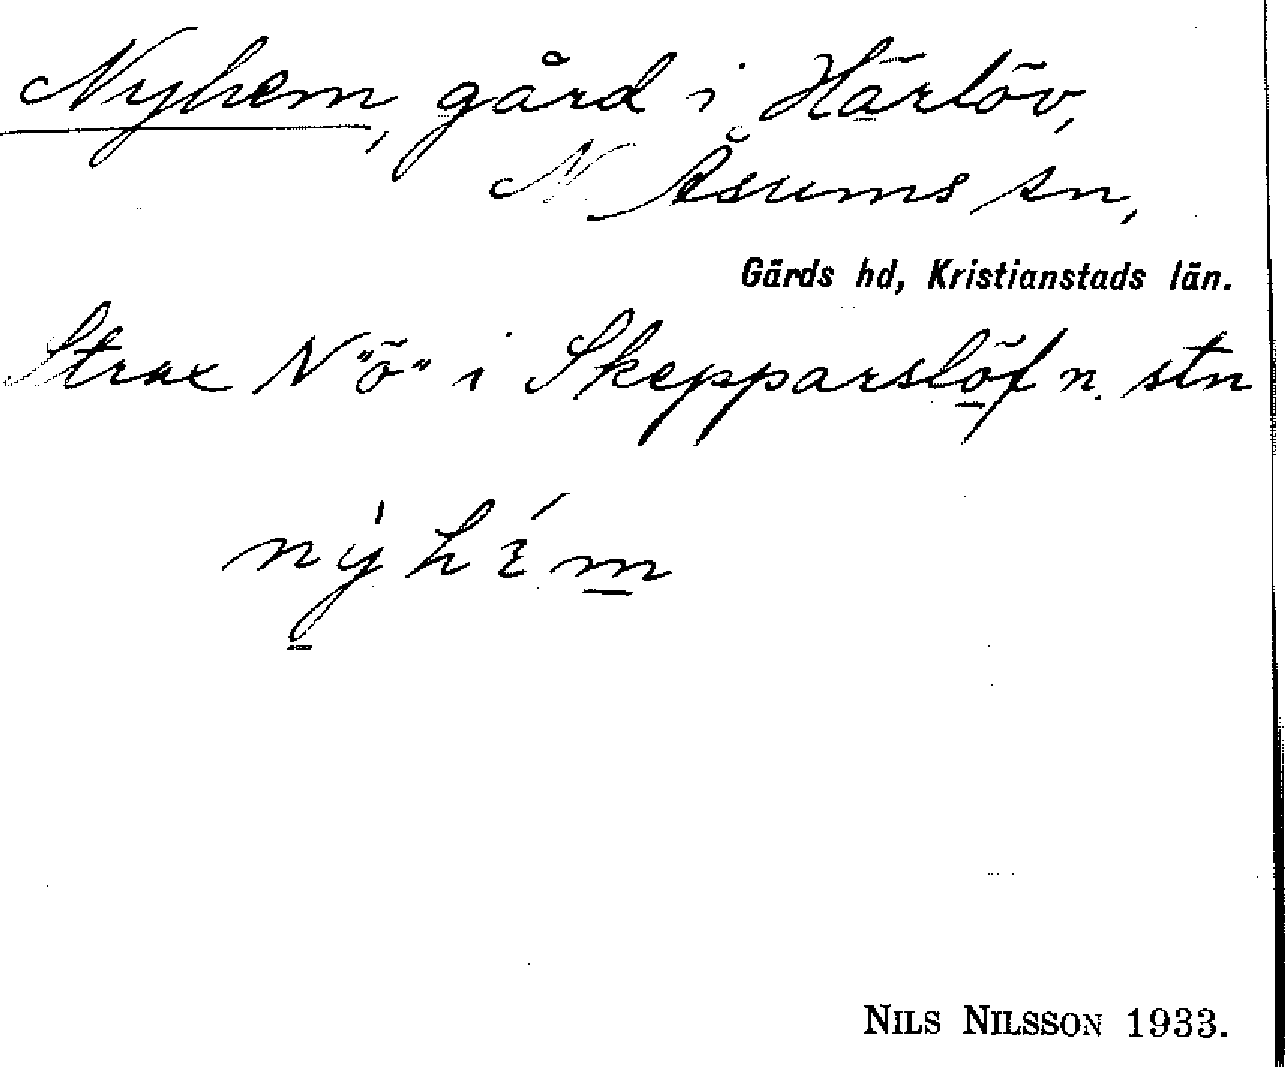 Nyhem, gård i Härlöv,
N. Åsums sn,
Gärds hd, Kristianstads län.
Strax N "ö" i Skepparslöf n. stn
nýhém
NILS NILSSON 1933.